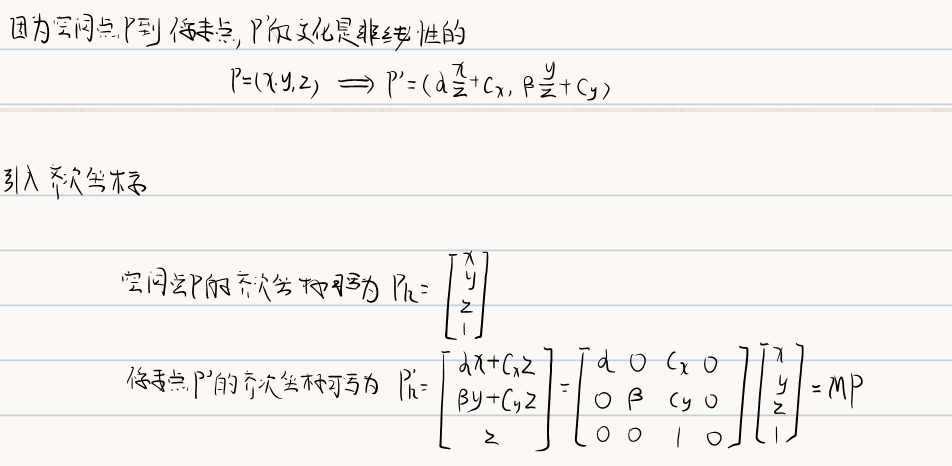 因为空间点P到像素点, P'的变化是非线性的
P=(x,y,z) ⟹ P'=(α x/z + Cx, β y/z + Cy)
引入齐次坐标
空间点P的齐次坐标可写为 Ph = [x y z 1]
像素点P'的齐次坐标可写为 P'h = [αx+Cxz βy+Cyz z] = [α 0 Cx 0 0 β Cy 0 0 0 1 0] [x y z 1] = MP